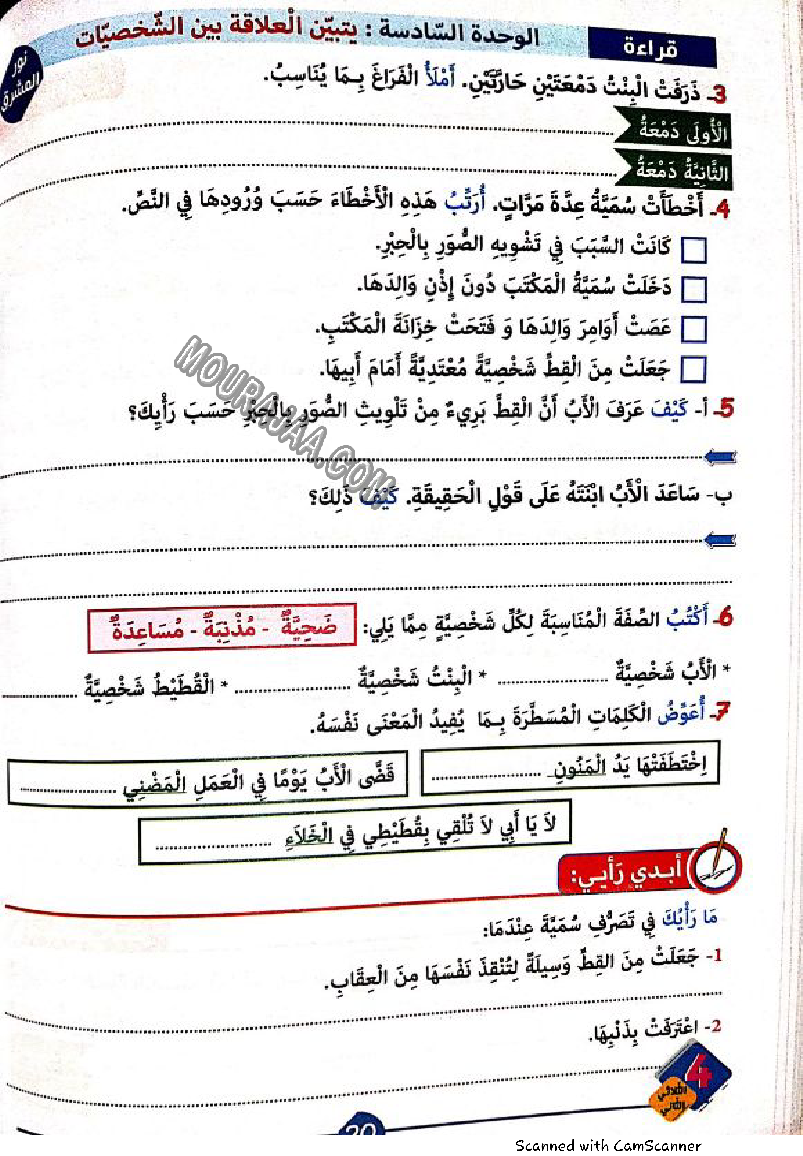 قراءة
الوحدة السّادسة : يتبيّن الْعلاقة بين الشّخصيّات
نور المشرق
3ـ ذَرَفَتْ الْبِنْتُ دَمْعَتَيْنِ حَارَّتَيْنِ. أَمْلَأُ الْفَرَاغَ بِمَا يُنَاسِبُ.
الْأُولَى دَمْعَةُ
الثَّانِيَّةُ دَمْعَةُ
4ـ أَخْطَأَتْ سُمَيَّةُ عِدَّةَ مَرَّاتٍ. أُرَتِّبُ هَذِهِ الْأَخْطَاءَ حَسَبَ وُرُودِهَا فِي النَّصِّ.
كَانَتْ السَّبَبَ فِي تَشْوِيهِ الصُّوَرِ بِالْحِبْرِ.
دَخَلَتْ سُمَيَّةُ الْمَكْتَبَ دُونَ إِذْنِ وَالِدَهَا.
عَصَتْ أَوَامِرَ وَالِدَهَا وَ فَتَحَتْ خِزَانَةَ الْمَكْتَبِ.
جَعَلَتْ مِنَ الْقِطِّ شَخْصِيَّةً مُعْتَدِيَّةً أَمَامَ أَبِيهَا.
MOURAJAA.COM
5ـ أ- كَيْفَ عَرَفَ الْأَبُ أَنَّ الْقِطَّ بَرِيءٌ مِنْ تَلْوِيثِ الصُّوَرِ بِالْحِبْرِ حَسَبَ رَأْيِكَ؟
ب- سَاعَدَ الْأَبُ ابْنَتَهُ عَلَى قَوْلِ الْحَقِيقَةِ. كَيْفَ ذَلِكَ؟
6ـ أَكْتُبُ الصِّفَةَ الْمُنَاسِبَةَ لِكُلِّ شَخْصِيَّةٍ مِمَّا يَلِي: ضَحِيَّةٌ - مُذْنِبَةٌ - مُسَاعِدَةٌ
* الْأَبُ شَخْصِيَّةٌ .................... * الْبِنْتُ شَخْصِيَّةٌ .................... * الْقُطَيْطُ شَخْصِيَّةٌ ....................
7ـ أُعَوِّضُ الْكَلِمَاتِ الْمُسَطَّرَةَ بِمَا يُفِيدُ الْمَعْنَى نَفْسَهُ.
اِخْتَطَفَتْهَا يَدُ الْمَنُونِ ....................
قَضَّى الْأَبُ يَوْمًا فِي الْعَمَلِ الْمُضْنِي ....................
لاَ يَا أَبِي لاَ تُلْقِي بِقُطَيْطِي فِي الْخَلَاءِ ....................
أبدي رَأيي:
مَا رَأْيُكَ فِي تَصَرُّفِ سُمَيَّةَ عِنْدَمَا:
1- جَعَلَتْ مِنَ الْقِطِّ وَسِيلَةً لِتُنْقِذَ نَفْسَهَا مِنَ الْعِقَابِ.
2- اعْتَرَفَتْ بِذَنْبِهَا.
4
الثلاثي الثاني
20
Scanned with CamScanner